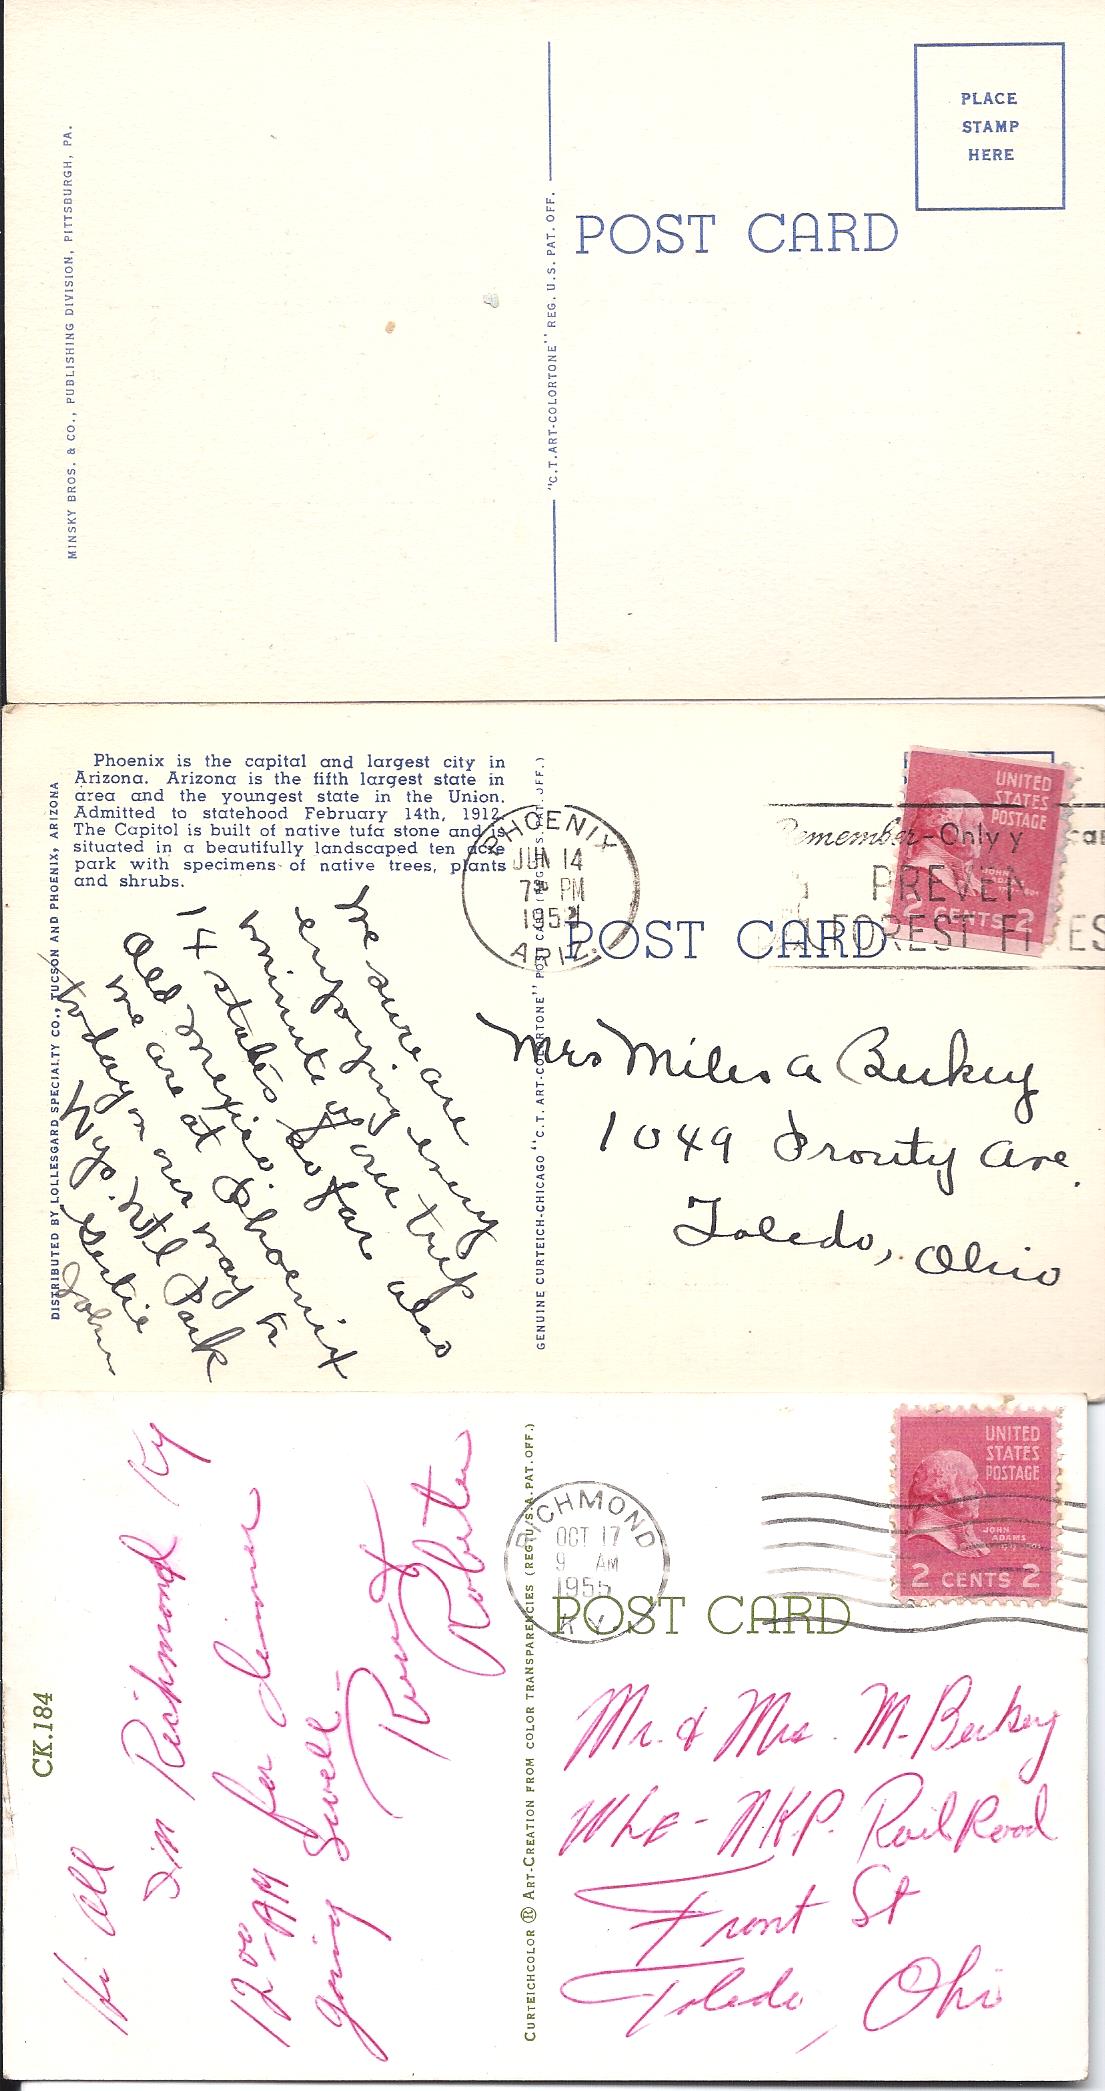 PLACE
STAMP
HERE
POST CARD
MINSKY BROS. & CO., PUBLISHING DIVISION, PITTSBURGH, PA.
"C.T. ART-COLORTONE" REG. U.S. PAT. OFF.
Phoenix is the capital and largest city in
Arizona. Arizona is the fifth largest state in
area and the youngest state in the Union.
Admitted to statehood February 14th, 1912.
The Capitol is built of native tufa stone and is
situated in a beautifully landscaped ten acre
park with specimens of native trees, plants
and shrubs.
DISTRIBUTED BY LOLLESGARD SPECIALTY CO., TUCSON AND PHOENIX, ARIZONA
We sure are
enjoying every
minute of our trip
14 states so far also
Old Mexico.
We are at Phoenix
today on our way to
Wyo. Ntl Park
Gertie
John
GENUINE CURTEICH-CHICAGO "C.T. ART-COLORTONE" POST CARD (REG. U.S. PAT. OFF.)
PHOENIX
JUN 14
7 PM
195
ARIZ.
Remember-Only y
PREVEN
FOREST FI ES
UNITED
STATES
POSTAGE
JOHN
2 CENTS 2
POST CARD
Mrs Miles A Berkey
1049 Prouty Ave.
Toledo, Ohio
CK.184
Hi All
In Richmond Ky
12 00 AM for dinner
going Swell-
Roberta
CURTEICHCOLOR ® ART-CREATION FROM COLOR TRANSPARENCIES (REG. U.S.A. PAT. OFF.)
RICHMOND
OCT 17
9 AM
1955
KY.
UNITED
STATES
POSTAGE
JOHN
ADAMS
2 CENTS 2
POST CARD
Mr. & Mrs. M. Berkey
WLE - NKP. RailRoad
Front St
Toledo, Ohio